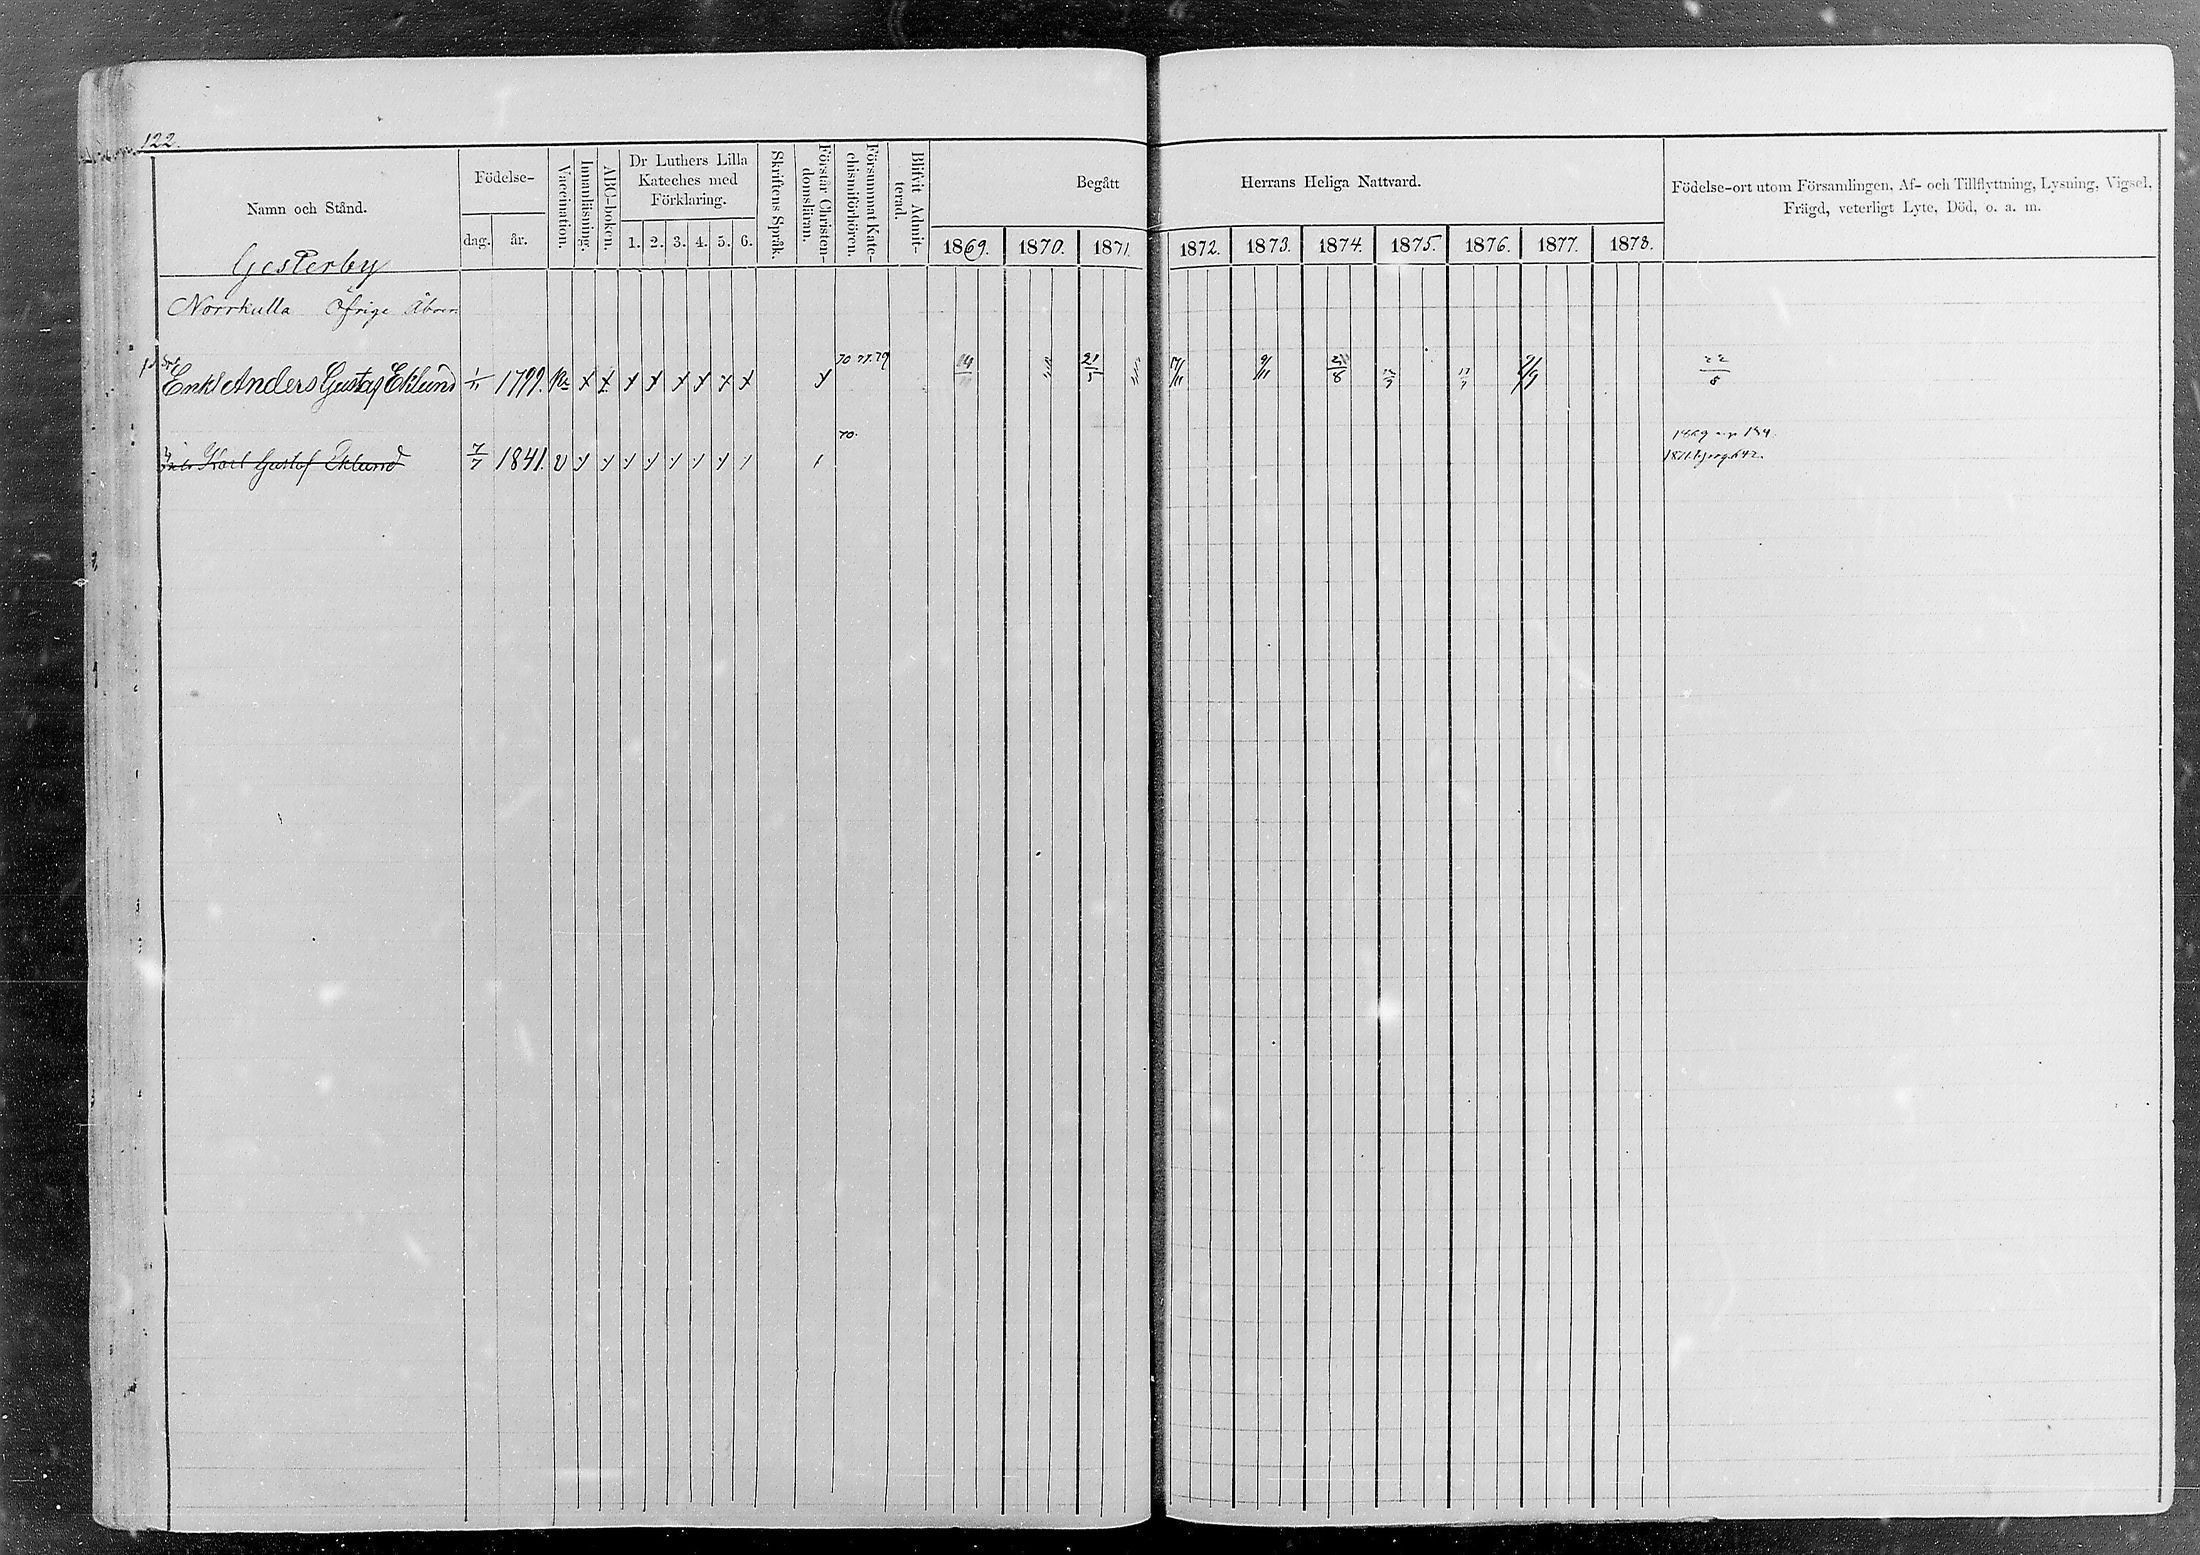 122.
Namn och Stånd.
Födelse-
dag. år.
Vaccination.
Innanläsning.
ABC-boken.
Dr Luthers Lilla
Kateches med
Förklaring.
1. 2. 3. 4. 5. 6.
Skriftens Språk.
Förstår Christen-
domsläran.
Försummat Kate-
chismiförhören.
Blifvit Admit-
terad.
Begått Herrans Heliga Nattvard.
1869. 1870. 1871. 1872. 1873. 1874. 1875. 1876. 1877. 1878.
Födelse-ort utom Församlingen, Af- och Tillflyttning, Lysning, Vigsel,
Frägd, veterligt Lyte, Död, o. a. m.
Gesterby
Norrkulla Öfrige
70 77. 79
Enkl Anders Gustaf Eklund 1/11 1799. x x x x x x x x y 21/5 17/11 9/11 21/8 2/9 22/8
70.
Karl Gustaf Eklund 7/7 1841. v y y y y y y y 1869 184.